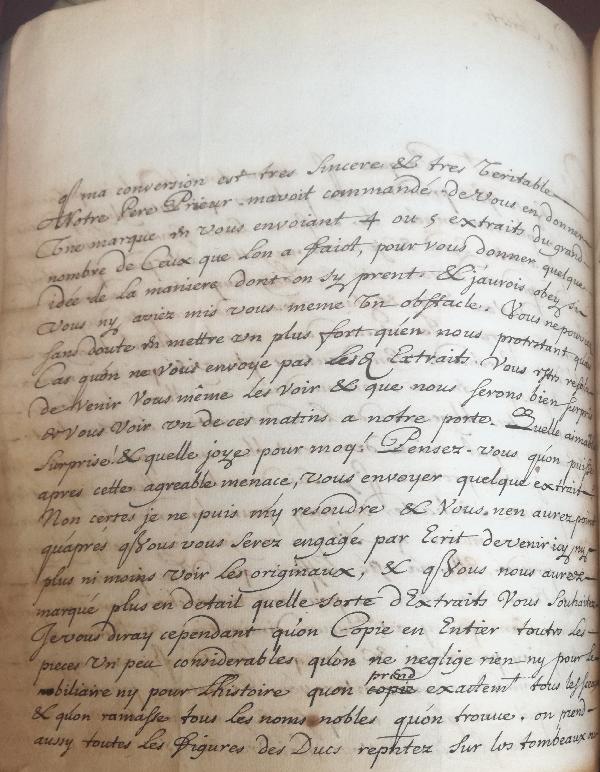 q ma conversion est tres sincere & tres veritable
Notre Pere Prieur mavoit commandé de vous en donner
Une marque en vous envoiant 4 ou 5 extraits du grand
nombre de Ceux que lon a faict, pour vous donner quelque
idée de la maniere dont on sy prent & j'aurois obey si
Vous ny aviez mis vous meme un obstacle. Vous ne pouviez
sans doute en mettre un plus fort quen nous protestant quen
Cas quon ne vous envoye pas les Extraits. Vous estes
de venir Vous même les voir & que nous serons bien surpris
de vous voir un de ces matins a notre porte. Quelle aimable
surprise! & quelle joye pour moy! Pensez-vous quon puisse
apres cette agreable menace, vous envoyer quelque extrait
Non certes je ne puis my resoudre & Vous. nen aurez point
quapres q Vous vous serez engagé par Ecrit de venir icy ny
plus ni moins voir les originaux, & q Vous nous aurez
marqué plus en detail quelle sorte dExtraits Vous souhaitez
Je vous diray cependant quon Copie en Entier toutes les
pieces un peu considerables quon ne neglige rien ny pour le
nobiliaire ny pour Lhistoire quon prend exactemt tous les sceaux
& quon ramasse tous les noms nobles quon trouve. on prend
aussy toutes les figures des Ducs reptez sur les tombeaux